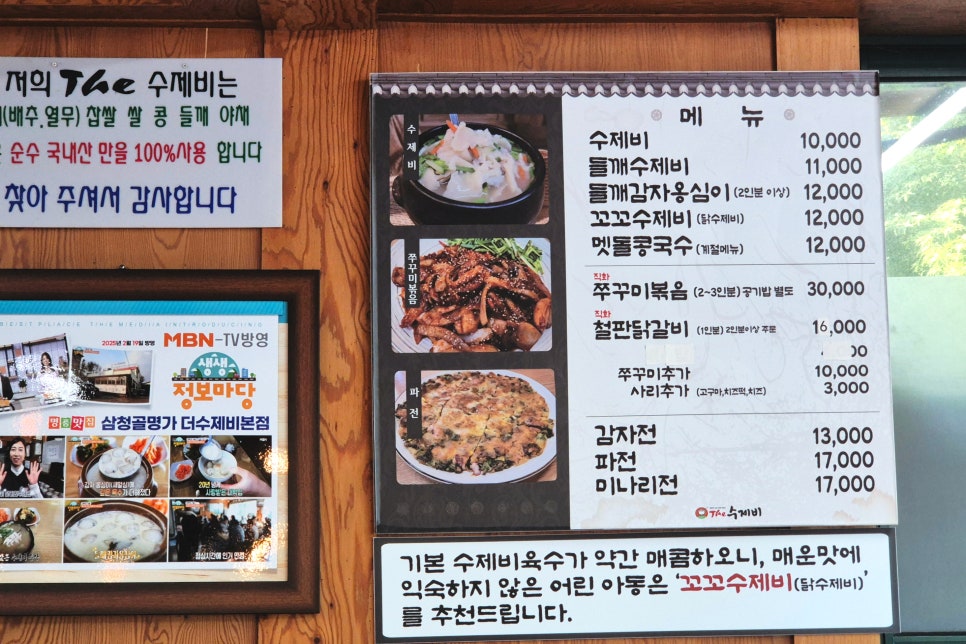 저희 The 수제비는
(배추.열무) 찹쌀 쌀 콩 들깨 야채
순수 국내산 만을 100%사용 합니다
찾아 주셔서 감사합니다
BEST PLACE THE MEDIA INTRODUCING
2025년 2월 19일 방영 MBN-TV방영
생생
정보마당
명품맛집 삼청골명가 더수제비본점
20년 넘게
점심시간에 인기 만점
메뉴
수제비
쭈꾸미볶음
파전
수제비 10,000
들깨수제비 11,000
들깨감자옹심이 (2인분 이상) 12,000
꼬꼬수제비 (닭수제비) 12,000
멧돌콩국수 (계절메뉴) 12,000
직화
쭈꾸미볶음 (2~3인분) 공기밥 별도 30,000
직화
철판닭갈비 (1인분) 2인분이상 주문 16,000
쭈꾸미추가 10,000
사리추가 (고구마,치즈떡,치즈) 3,000
감자전 13,000
파전 17,000
미나리전 17,000
The 수제비
기본 수제비육수가 약간 매콤하오니, 매운맛에
익숙하지 않은 어린 아동은 '꼬꼬수제비(닭수제비)'
를 추천드립니다.